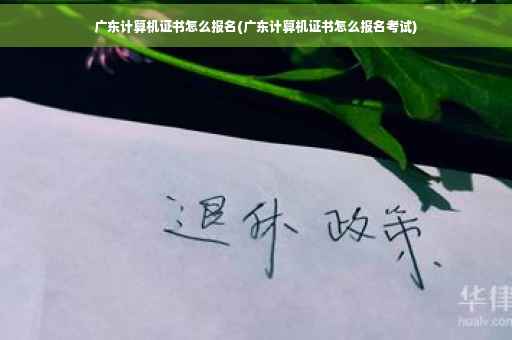 广东计算机证书怎么报名(广东计算机证书怎么报名考试)
退休 政策
华律
hualv.com